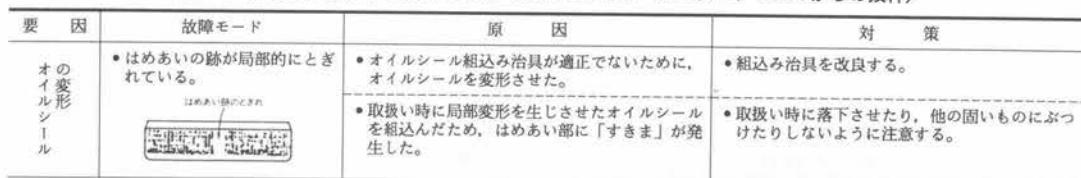 要 因
故障モード
原 因
対 策
オイルシール
の変形
•はめあいの跡が局部的にとぎ
れている。
はめあい跡のとぎれ
•オイルシール組込み治具が適正でないために，
オイルシールを変形させた。
•組込み治具を改良する。
•取扱い時に局部変形を生じさせたオイルシール
を組込んだため，はめあい部に「すきま」が発
生した。
•取扱い時に落下させたり，他の固いものにぶつ
けたりしないように注意する。